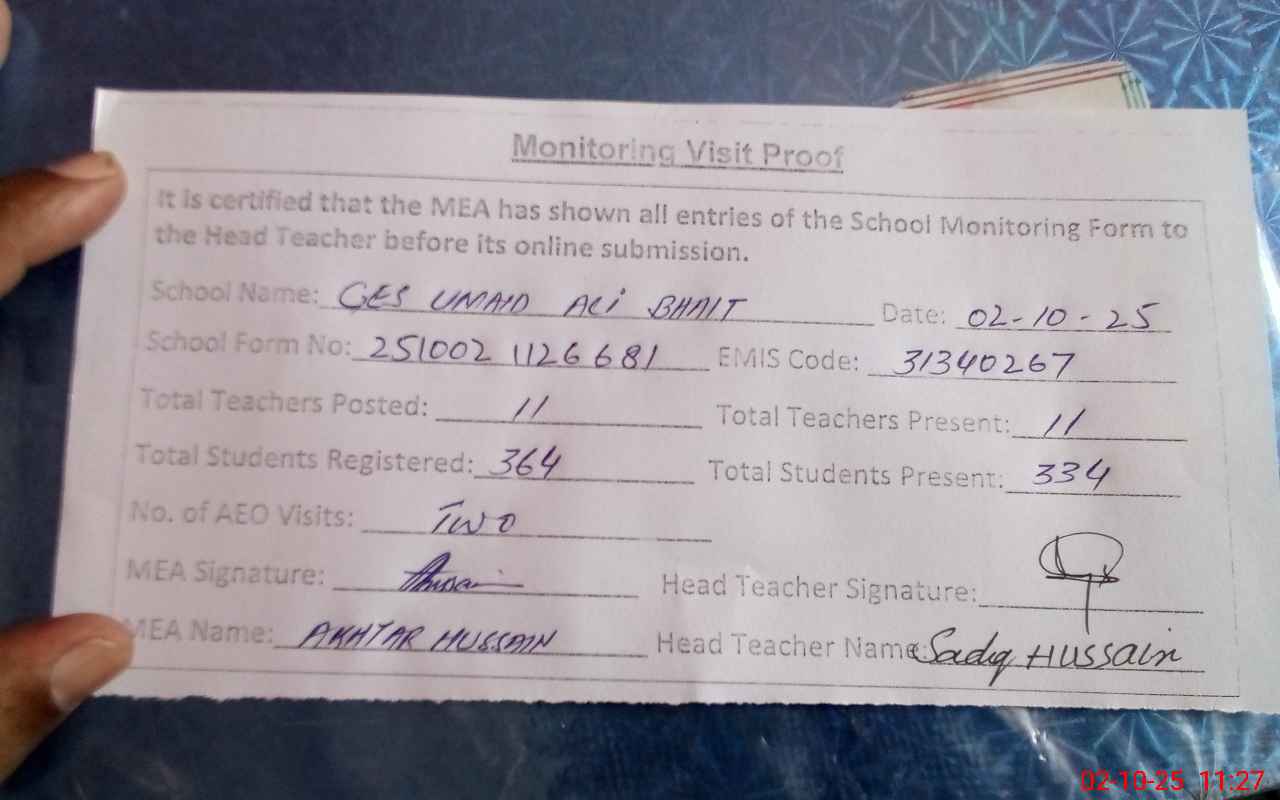 Monitoring Visit Proof
It is certified that the MEA has shown all entries of the School Monitoring Form to
the Head Teacher before its online submission.
School Name: GES UMAID ALI BHAIT Date: 02-10-25
School Form No: 251002 1126681 EMIS Code: 31340267
Total Teachers Posted: 11 Total Teachers Present: 11
Total Students Registered: 364 Total Students Present: 334
No. of AEO Visits: Two
MEA Signature: Head Teacher Signature:
MEA Name: AKHTAR HUSSAIN Head Teacher Name: Sadiq HUSSAIN
02-10-25 11:27